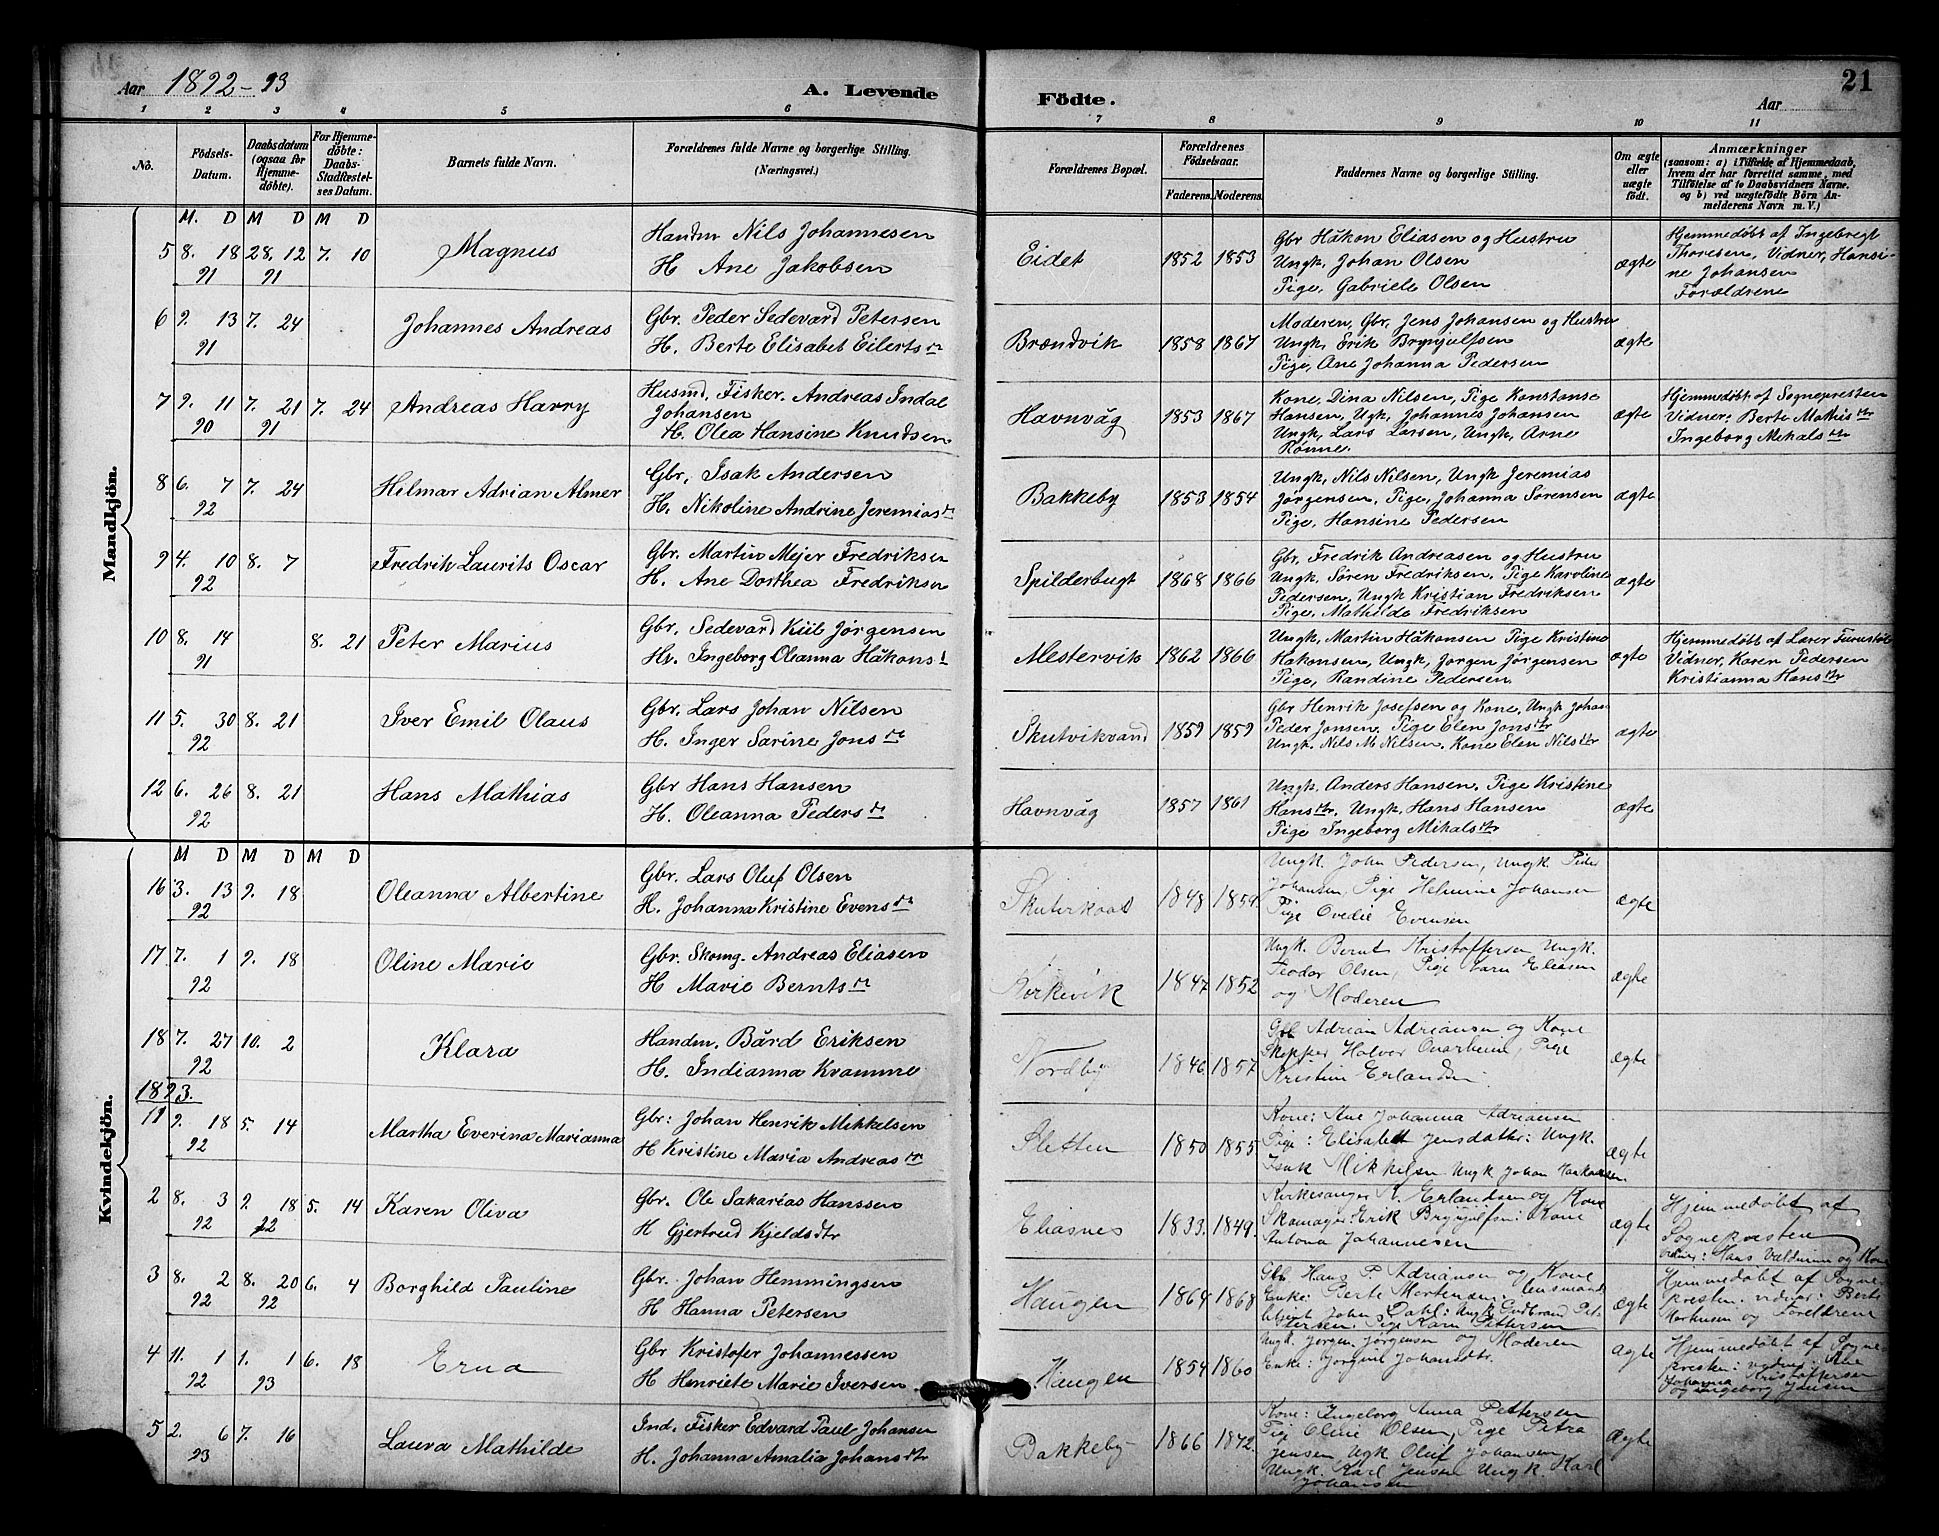 Aar 1892-93
A. Levende Födte.
Aar
21
1 2 3 4 5 6 7 8 9 10 11
No.
Födsels-Datum.
Daabsdatum (ogsaa for Hjemme-döbte).
For Hjemme-döbte: Daabs-Stadfæstel-ses Datum.
Barnets fulde Navn.
Forældrenes fulde Navne og borgerlige Stilling.
(Næringsvei.)
Forældrenes Bopæl.
Forældrenes Födselsaar.
Faderens. Moderens.
Faddernes Navne og borgerlige Stilling.
Om ægte eller uægte födt.
Anmærkninger
(saasom: a) i Tilfælde af Hjemmedaab,
hvem der har forrettet samme, med
Tilföielse af to Daabsvidners Navne.
og b) ved uægtefödte Börn An-
melderens Navn m. V.)
Mandkjön.
M. D M D M D
5 8. 18 28. 12 7. 10
91 91
Magnus
Handm Nils Johannesen
H Ane Jakobsen
Eidet 1852 1853
Gbr Håkon Eliasen og Hustru
Ungk, Johan Olsen
Pige, Gabriele Olsen
ægte
Hjemmedøbt af Ingebregt
Thoresen, Vidner, Hansi-
ne Johansen
Forældrene
6 9. 13 7. 24
91
Johannes Andreas
Gbr. Peder Sedevard Petersen
H. Berte Elisabet Eilerts dr
Brændvik 1858 1867
Moderen, Gbr, Jens Johansen og Hustru
Ungk, Erik Brynjulfsen
Pige, Ane Johanna Pedersen
ægte
7 9. 11 7. 21 7. 24
90 91
Andreas Harry
Husmd. Fisker. Andreas Indal
Johansen
H. Olea Hansine Knudsen
Havnvåg 1853 1867
Kone, Dina Nilsen, Pige Konstanse
Hansen, Ugk, Johannes Johansen
Ungk, Lars Larsen, Ungk, Arne
Rønne.
ægte
Hjemmedøbt af Sognepresten
Vidner: Berte Mathis dtr
Ingeborg Mikals dtr
8 6. 7 7. 24
92
Helmar Adrian Almer
Gbr, Isak Andersen
H. Nikoline Andrine Jeremias dr
Bakkeby 1853 1854
Ungk, Nils Nilsen, Ungk Jeremias
Jørgensen, Pige, Johanna Sørensen
Pige, Hansine Pedersen
ægte
9 4. 10 8. 7
92
Fredrik Laurits Oscar
Gbr. Martin Mejer Fredriksen
H. Ane Dorthea Fredriksen
Spilderbugt 1868 1866
Gbr, Fredrik Andreasen og Hustru
Ungk, Søren Fredriksen, Pige Karoline
Pedersen, Ungk Kristian Fredriksen
Pige, Mathilde Fredriksen
ægte
10 8. 14 8. 21
91
Peter Marius
Gbr, Sedevard Kiil Jørgensen
H. Ingeborg Oleanna Håkons
Mestervik 1862 1866
Ungk, Martin Håkonsen Pige Kristine
Hakonsen, Ungk, Jørgen Jørgensen
Pige, Randine Pedersen
ægte
Hjemmedøbt af Lærer
Vidner, Karen Pedersen
Kristianna Hans dtr
11 5. 30 8. 21
92
Iver Emil Olaus
Gbr. Lars Johan Nilsen
H. Inger Sarine Jons dr
Skutvikvand 1859 1859
Gbr Henrik Josefsen og Kone, Ungk Johan
Peder Jonsen. Pige Elen Jons dtr
Ungk. Nils M. Nilsen. Kone Elen Nils dtr
ægte
12 6. 26 8. 21
92
Hans Mathias
Gbr Hans Hansen
H. Oleanna Peders dr
Havnvåg 1857 1861
Ungk. Anders Hansen. Pige Kristine
Hans dtr, Ungk, Hans Hansen
Pige Ingeborg Mikals dtr
ægte
Kvindekjön.
M D M D M D
16 3. 13 9. 18
92
Oleanna Albertine
Gbr. Lars Oluf Olsen
H. Johanna Kristine Evens dr
1848 1859
Ungk. John Pedersen, Ungk. Peder
Johansen, Pige Helmine Johansen
Pige Ovedie Evensen
ægte
17 7. 1 9. 18
92
Oline Marie
Gbr. Skomg. Andreas Eliasen
H Marie Bernts dr
1847 1852
Ungk. Bernt Kristoffersen Ungk.
Teodor Olsen, Pige Karn Eliasen
og Moderen
ægte
18 7. 27 10. 2
92
Klara
Handm. Bård Eriksen
H. Indianna Kvamme
Nordby 1846 1857
Gbr Adrian Adriansen og Kone
Skipper Halvor Ovarheim, Pige
Kristine Erlandsen.
ægte
1893.
1 9. 18 5. 14
92
Martha Everina Marianna
Gbr: Johan Henrik Mikkelsen
H Kristine Maria Andreas dr
Sletten 1850 1855
Kone: Ane Johanna Adriansen
Pige: Elisabett Jensdatter: Ungk.
Isak Mikkelsen Ungk Johan
ægte
2 8. 3 9. 18 5. 14
92 92
Karen Oliva
Gbr. Ole Sakarias Hanssen
H Gjertrud Kjeldsdtr
Eliasnes 1833. 1849.
Kirkesanger K. Erlandsen og Kone
Skomager: Erik Brynjulfsn: Kone
Antona Johannesen
ægte
Hjemmedøbt af
Sognepresten
vidner: Hans Valdemm og Kone
3 8. 2 8. 20 6. 4
92 92
Borghild Pauline
Gbr. Johan Hemmingsen
H Hanna Petersen
Haugen 1864 1868
Gbr Hans P. Adriansen og Kone
Enke: Berte Mortensen: Lensmand
betjent John Dahl: Ungk Gudbrand Pet-
tersen: Pige Karn Pettersen
ægte
Hjemmedøbt af Sogne-
presten. vidner: Berte
Mortensen og Foreldrene
4 11. 1 1. 1 6. 18
92 93
Erna
Gbr Kristofer Johannessen
H Henriete Marie Iversen
Haugen 1854 1860
Ungk. Jørgen Jørgensen og Moderen
Enke: Jørgine Johansdtr.
ægte
Hjemmedøbt af Sogne-
presten: vidner: Ane
Johanna Kristoffersen
og Ingeborg Jensen
5 2. 6 7. 16
93
Laura Mathilde
Ind. Fisker Edvard Paul Johansen
H. Johanna Amalia Johans dtr
Bakkeby 1866 1872
Kone: Ingeborg Anna Pettersen
Pig Oline Olsen, Pige Petra
Jensen, Ungk Oluf Johansen
Ungk. Karl Jensen Ungk. Karl
Johansen
Ægte